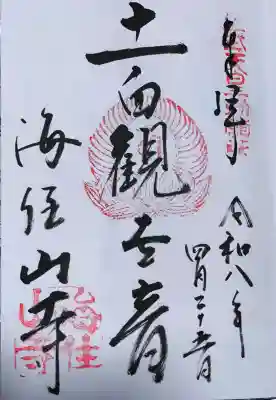 奉拝
令和八年
四月二十五日
十一面観世音
海住山寺